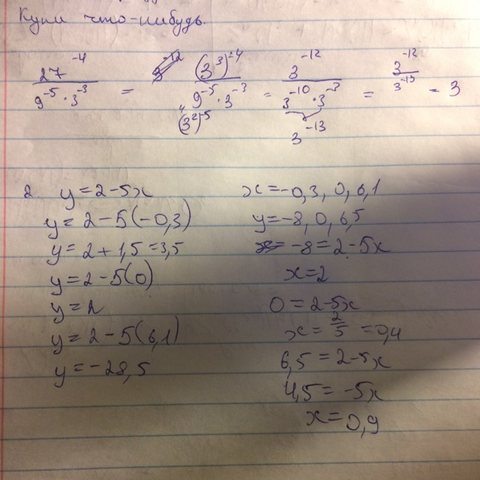 Купи что-нибудь.
27^-4 / 9^-5 · 3^-3 = (3^3)^-4 / 9^-5 · 3^-3 = 3^-12 / 3^-10 · 3^-3 = 3^-12 / 3^-15 - 3
(3^2)^-5
3^-13
2 y = 2 - 5x
y = 2 - 5(-0,3)
y = 2 + 1,5 = 3,5
y = 2 - 5(0)
y = 2
y = 2 - 5(6,1)
y = -28,5
x = -0,3, 0, 6,1
y = -8, 0, 6,5
-8 = 2 - 5x
x = 2
0 = 2 - 5x
x = 2/5 = 0,4
6,5 = 2 - 5x
4,5 = -5x
x = 0,9